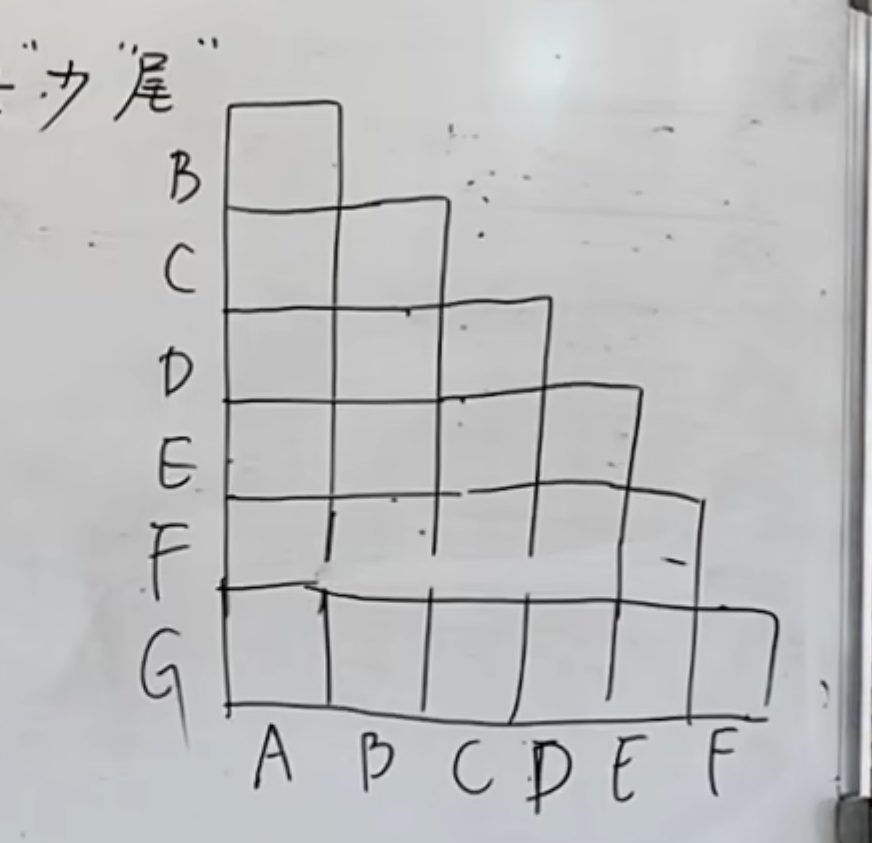 少"尾"
B
C
D
E
F
G
A B C D E F